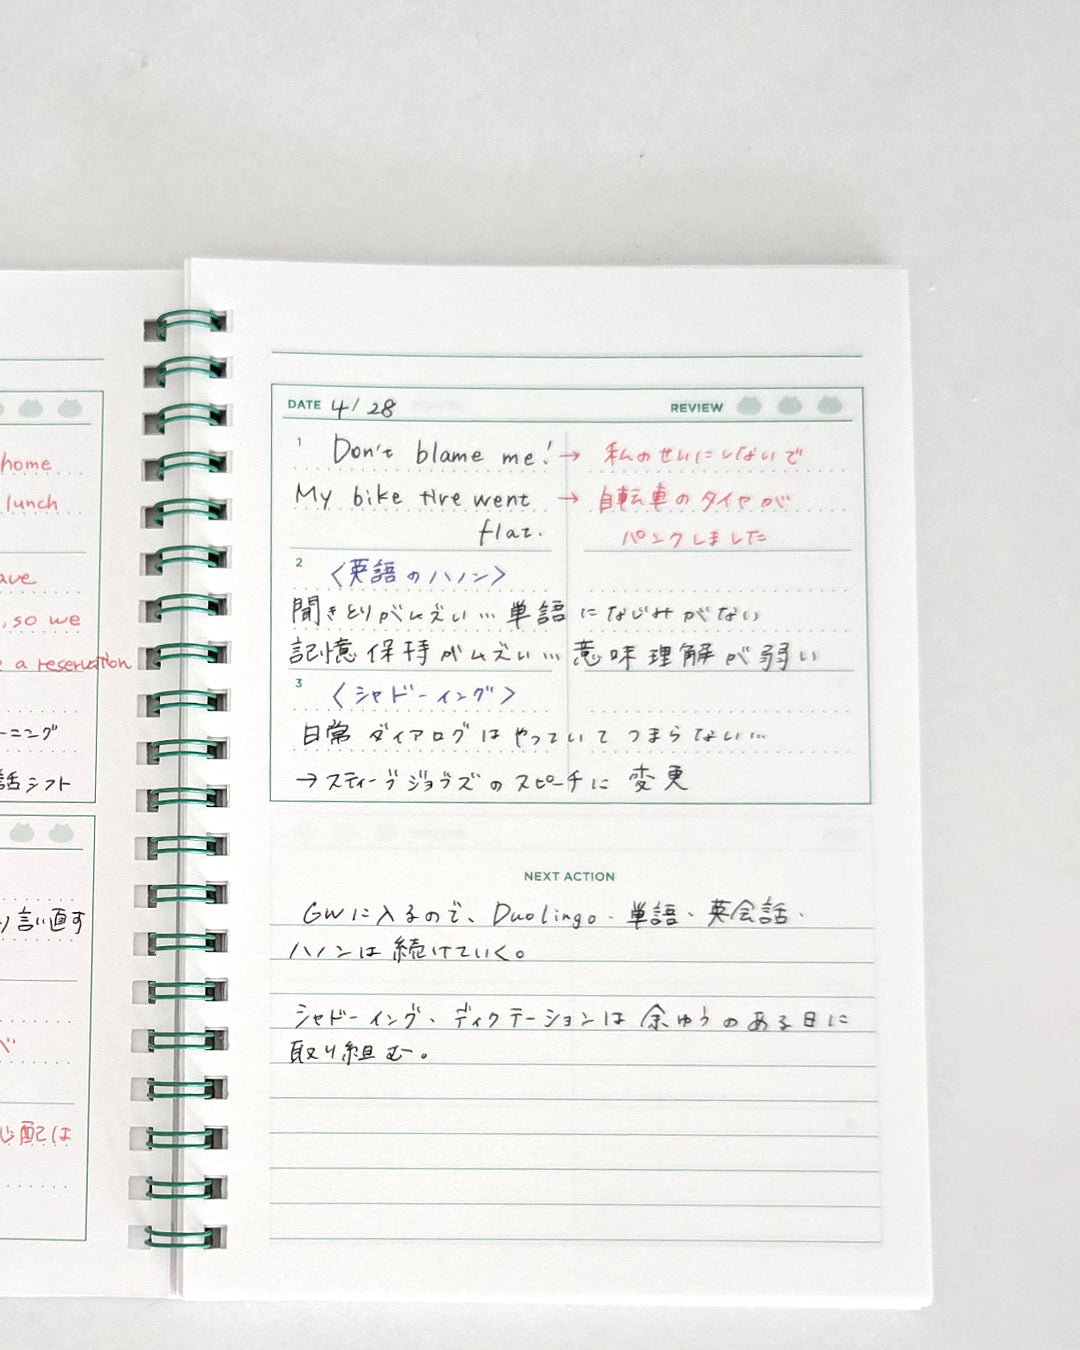 home
lunch
ave
, so we
e a reservation
ーニング
話シフト
り言い直す
べ
心配は
DATE 4/28 REVIEW
1 Don't blame me! → 私のせいにしないで
My bike tire went → 自転車のタイヤが
flat. パンクしました
2 〈英語のハノン〉
聞きとりがムズい…単語になじみがない
記憶保持がムズい…意味理解が弱い
3 〈シャドーイング〉
日常ダイアログはやっていてつまらない…
→スティーブジョブズのスピーチに変更
NEXT ACTION
GWに入るので、Duolingo・単語・英会話・
ハノンは続けていく。
シャドーイング、ディクテーションは余ゆうのある日に
取り組む。